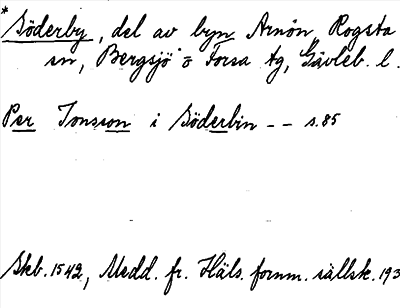 * Söderby, del av byn Arnön, Rogsta
sn, Bergsjö o Forsa tg, Gävleb. l.
Per Jonsson i Söderbin -- s.85
Skb. 1542, Medd. fr. Häls. fornm. sällsk. 193